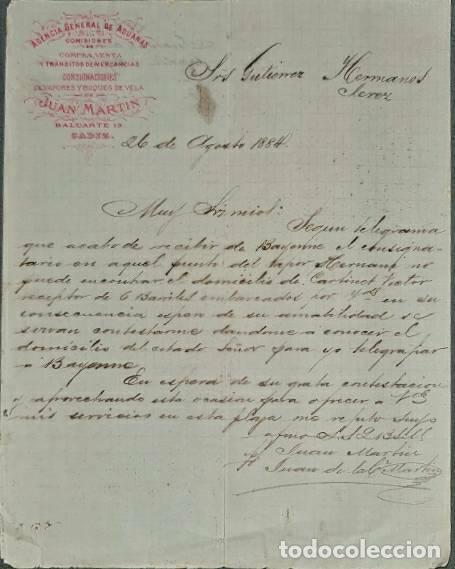 AGENCIA GENERAL DE ADUANAS
COMISIONES
DE
COMPRA, VENTA
Y TRÁNSITOS DE MERCANCIAS
CONSIGNACIONES
DE VAPORES Y BUQUES DE VELA
DE
JUAN MARTIN
BALUARTE 13
CADIZ.
Srs Gutierrez Hermanos
Jerez
26 de Agosto 1884.
Muy Srs mios:
Segun telegrama
que acabo de recibir de Bayonne el consigna-
tario en aquel punto del vapor Hernani no
puede encontrar el domicilio de
receptor de 6 Barriles embarcados por Vds en su
consecuencia espero de su amabilidad se
sirvan contestarme dandome a conocer el
domicilio del citado Señor para yo telegrafiar
a Bayonne
En espera de su grata contestacion
y aprovechando esta ocasion para ofrecer a Vds
mis servicios en esta plaza me repito suyo
afmo S.S.Q.B.S.M.
Juan Martin
Juan de la Martin
todocoleccion